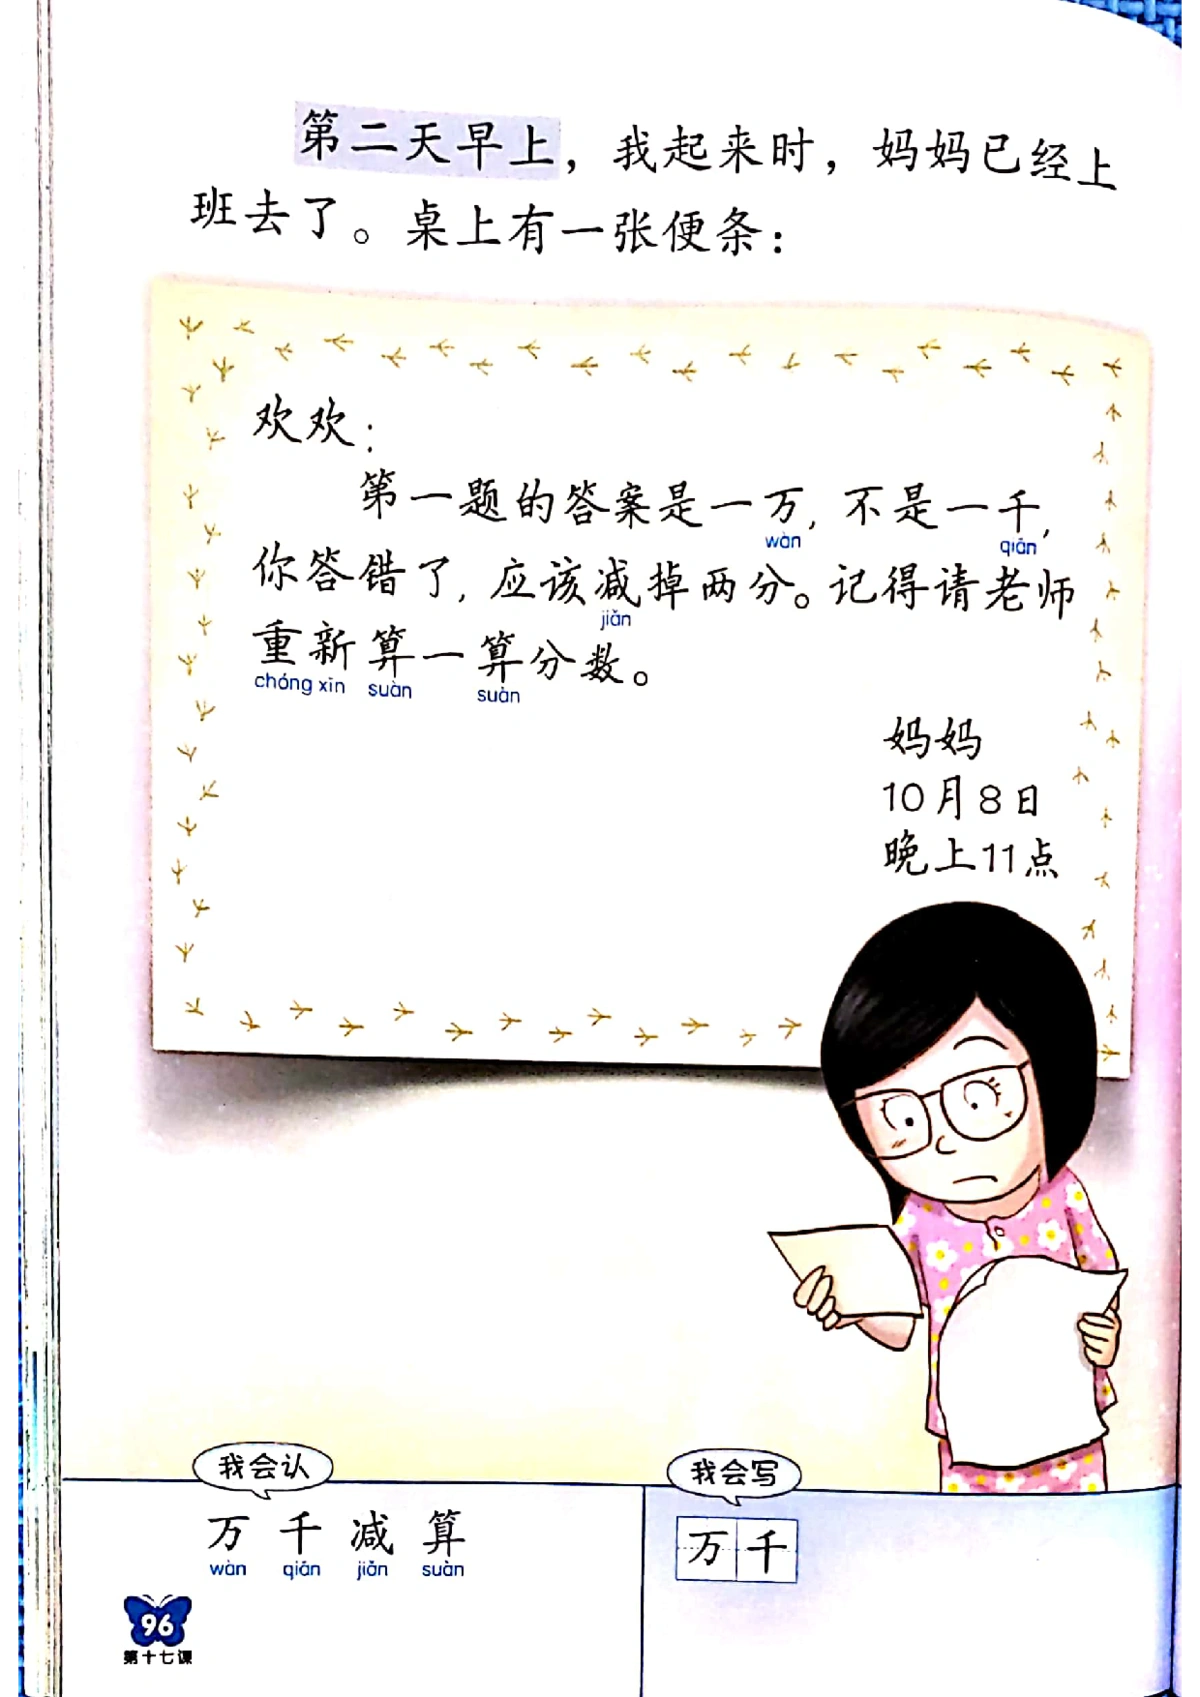 第二天早上，我起来时，妈妈已经上
班去了。桌上有一张便条：
欢欢：
第一题的答案是一万，不是一千，
wàn qiān
你答错了，应该减掉两分。记得请老师
jiǎn
重新算一算分数。
chóng xīn suàn suàn
妈妈
10月8日
晚上11点
我会认
万 千 减 算
wàn qiān jiǎn suàn
我会写
万 千
96
第十七课